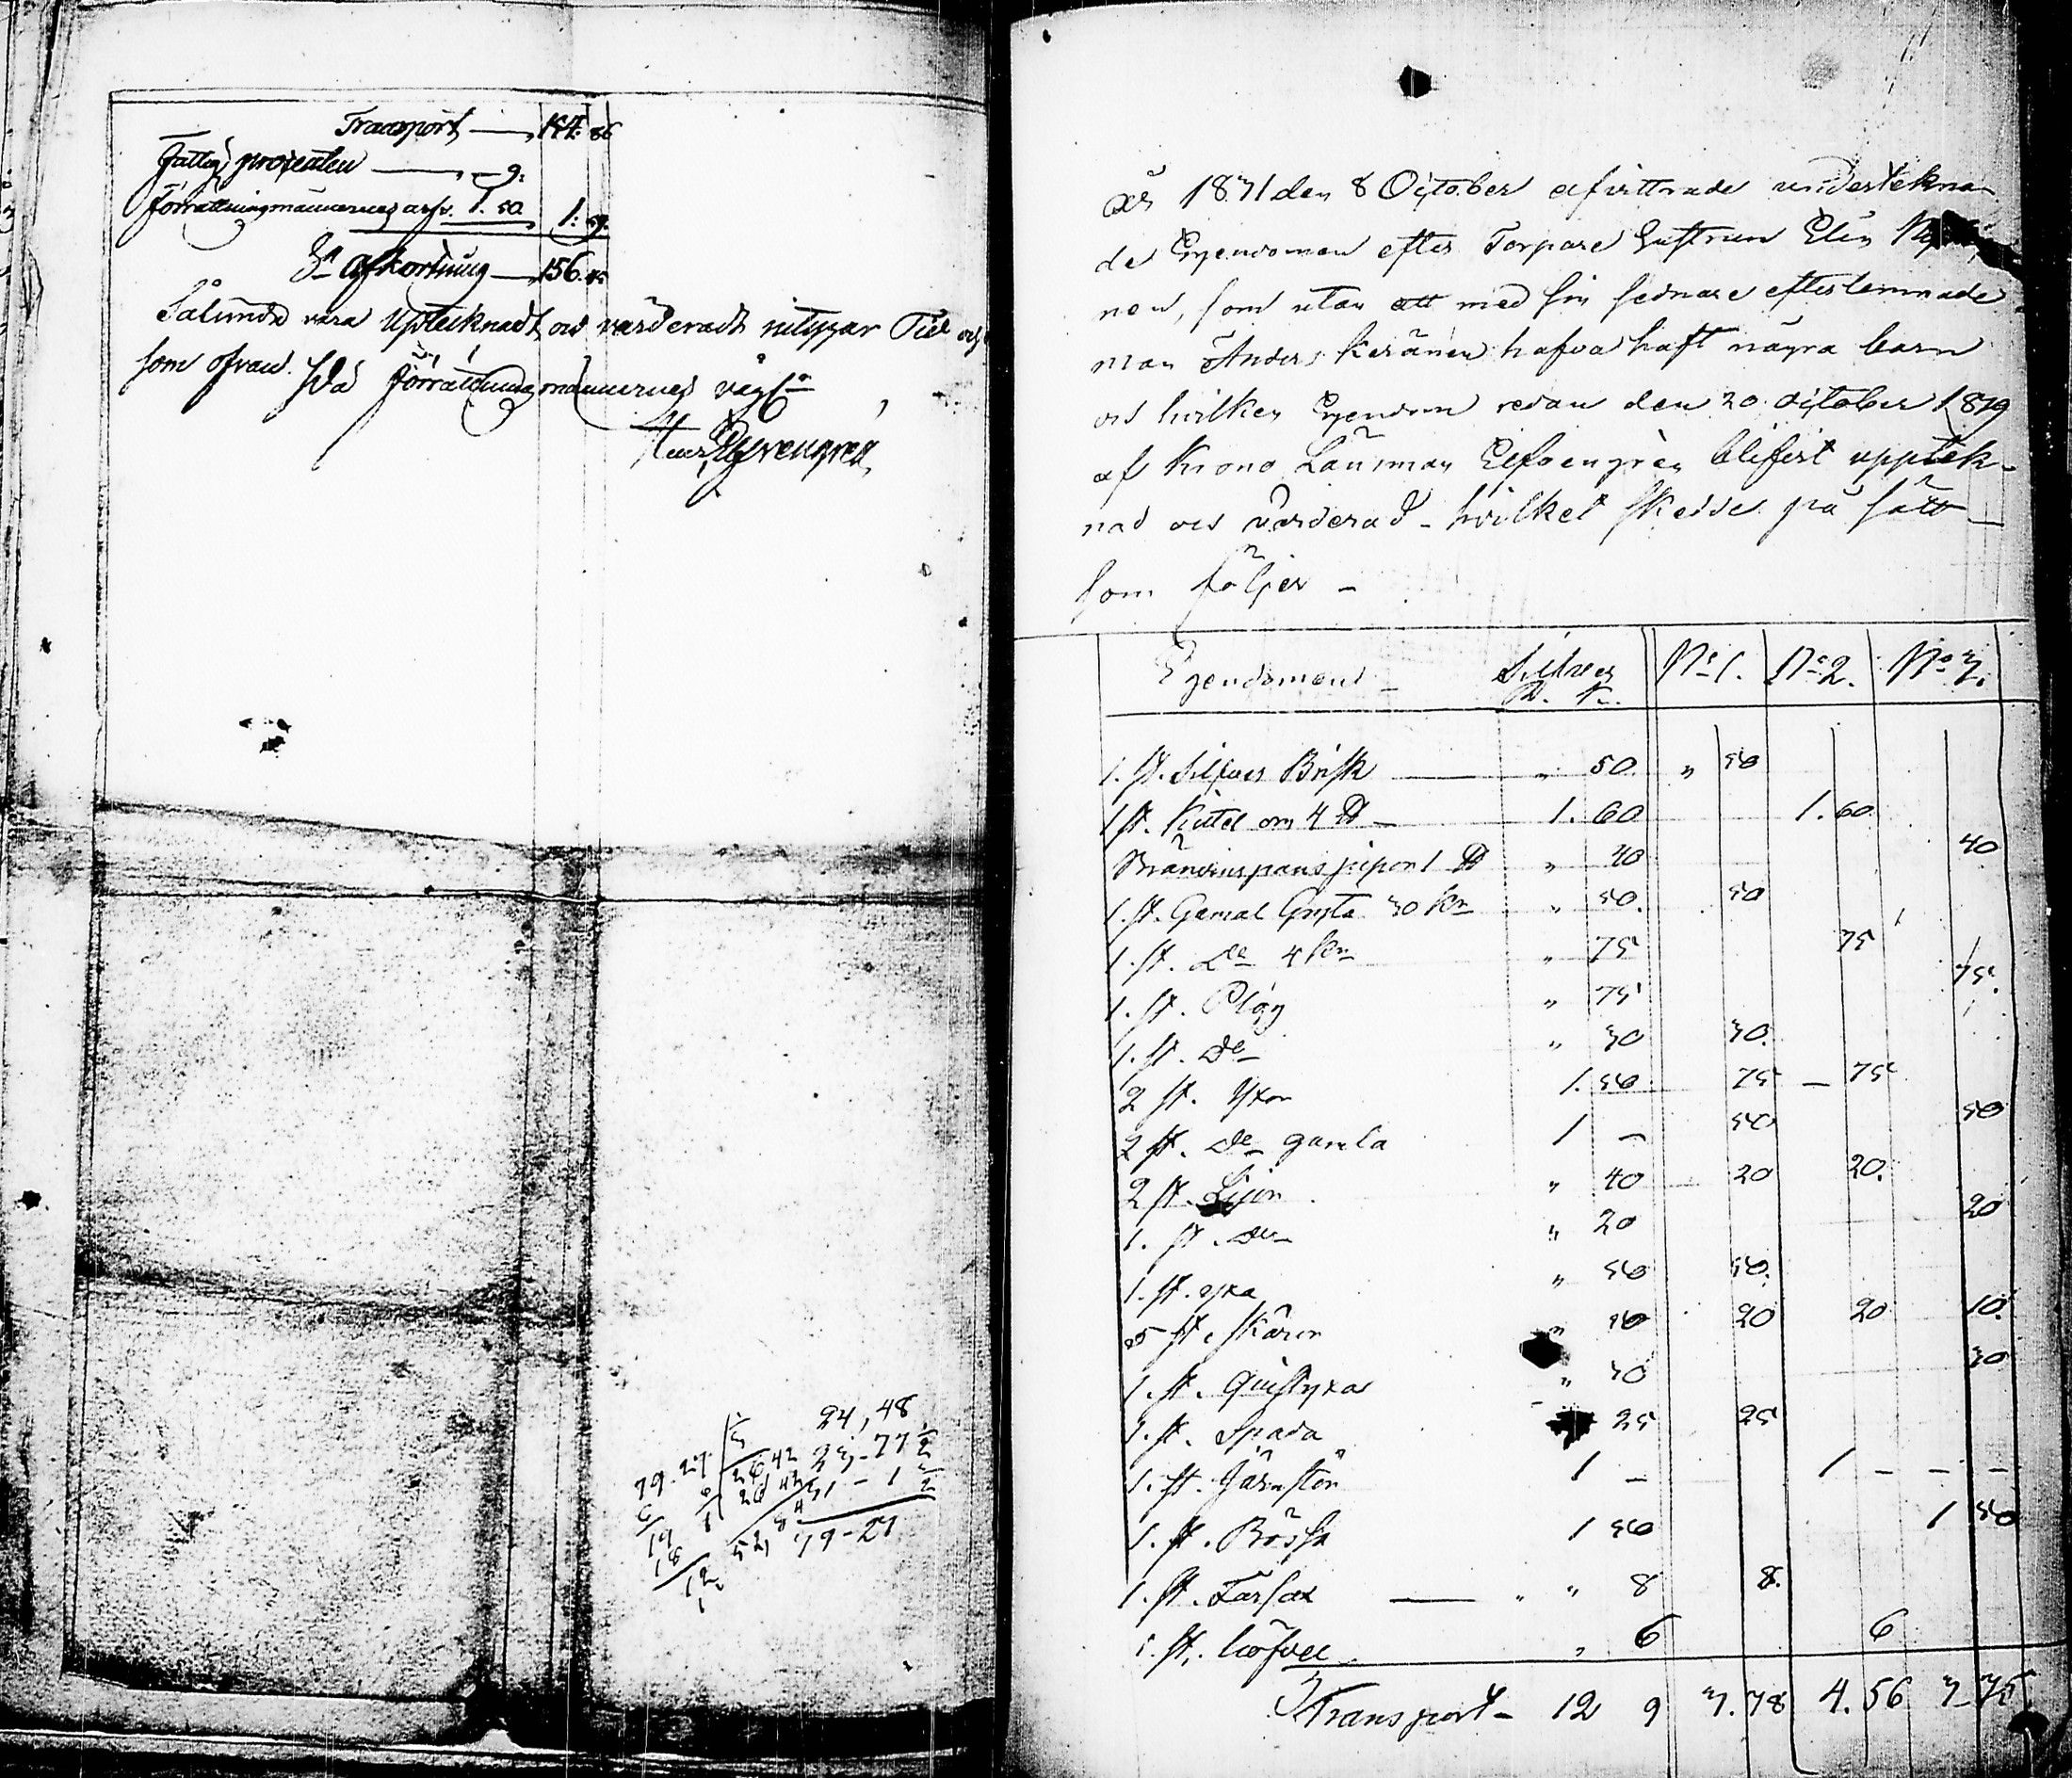 Transport — 154. 86
Fattig procenten — „ — 9.
Förrättningsmännernes arfv. 1. 50 1: 59.
S:a afkortning — 156. 45
Sålunda vara Uptecknadt och värderadt uitygar Tid och
som ofvan. På Förrättningsmännernes vägn
24, 48
79-27
År 1871 den 8 October afvittrade undertekna-
de Egendomen efter Torpare Enstrun Elin
nen, som utan att med sin sednare efterlemnade
man Anders Keränen hafva haft några barn
och hvilken Egendom redan den 20 October 1879
af Krono Länsman Elfvengren blifvit upptek-
nad och värderad – hvilket skedde på sätt
som följer –
Egendomens Silfver R. K. No 1. No 2. No 3.
1. st. Silfver Brisk — „ 50. „ 50
1 st. Kittel om 4 ℔ — 1. 60 1. 60
Brännvinspanspipor 1 ℔ „ 40 40
1. st. Gamal Gryta 30 Kn „ 50. 50
1. st. Do 4 Kn „ 75 75
1. st. Plog „ 75 75.
1. st. Do „ 30 30.
2 st. Yxor 1. 50 75 — 75
2 st. Do gamla 1 — 50 50
2 st. Lijor „ 40 20 20.
1. st. Do „ 20 20
1. st. yxa „ 50 50.
5 st. skäror „ 50 20 20 10.
1. st. Quistyxa „ 30 30
1. st. Spada 25 25
1. st. Järnstör 1 — 1 — — —
1. st. Bössa 1 50 1 50
1. st. Får sax — „ „ 8 8.
1. st. höfvel „ 6 6
Transport — 12 9 3. 78 4. 56 3. 75